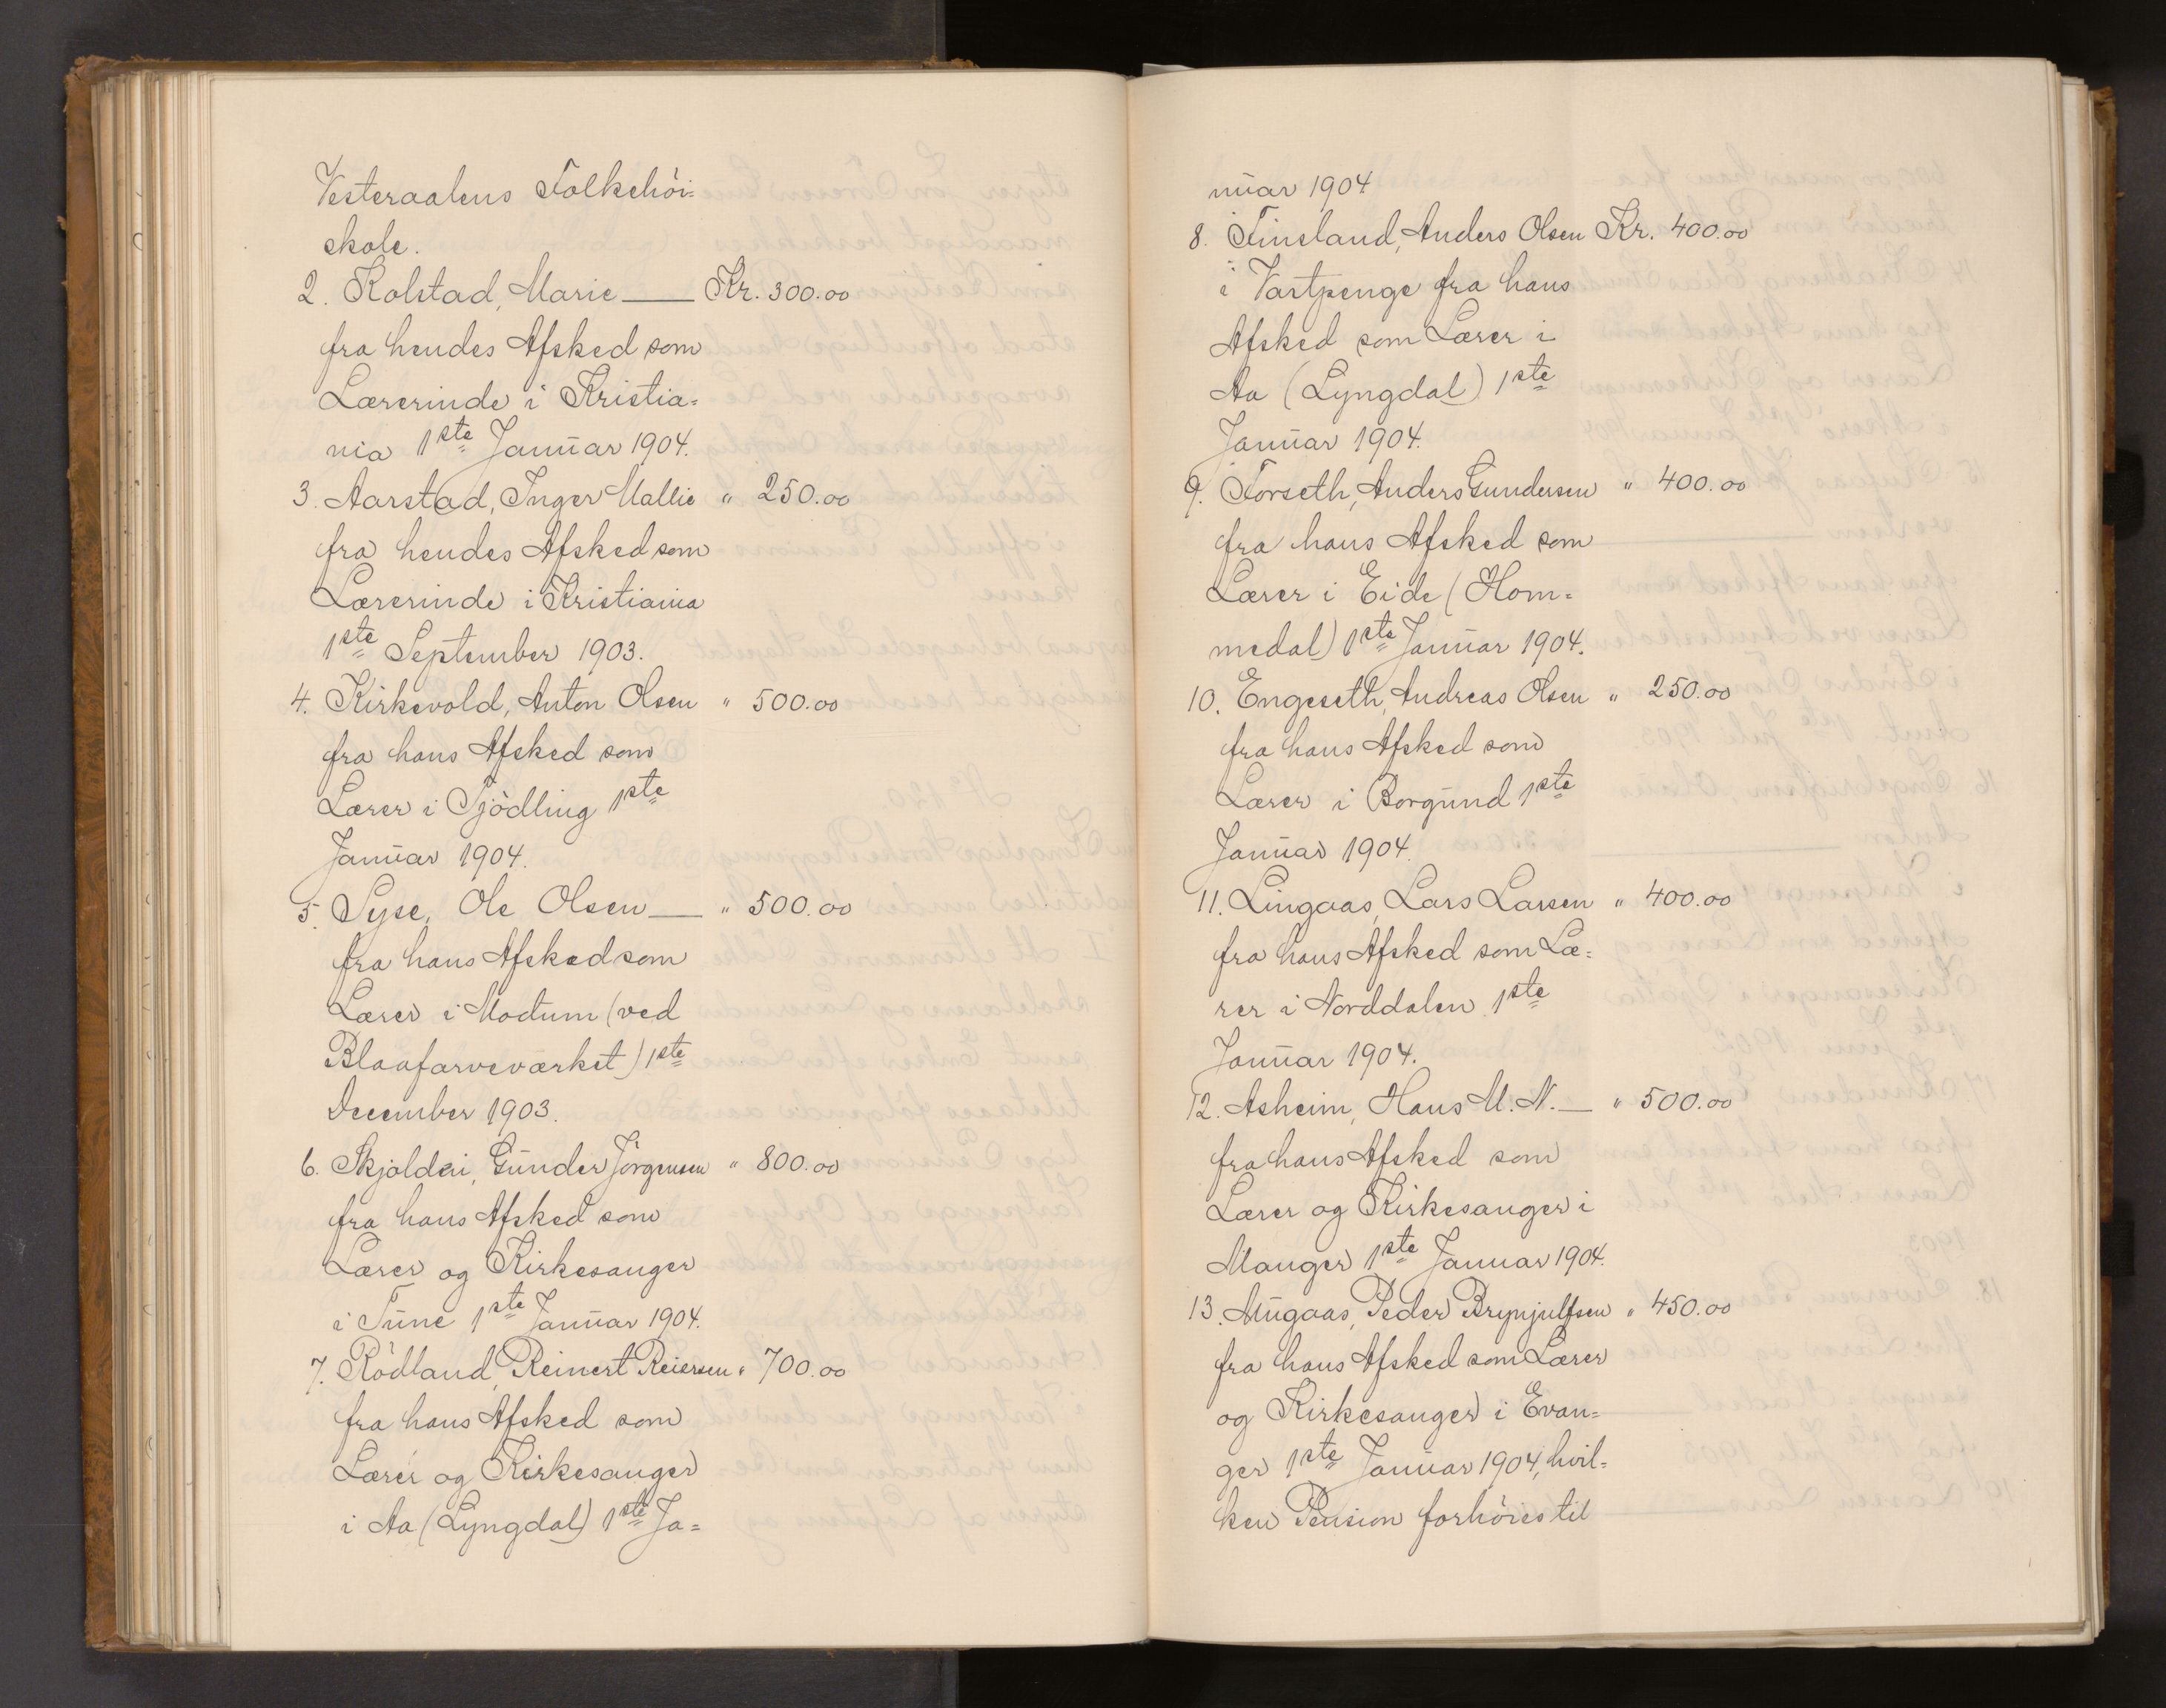 Vesteraalens Folkehöi-
skole.
2. Kolstad, Marie — Kr. 300.00
fra hendes Afsked som
Lærerinde i Kristia-
nia 1ste Januar 1904.
3. Aarstad, Inger Mallie " 250.00
fra hendes Afsked som
Lærerinde i Kristiania
1ste September 1903.
4. Kirkevold, Anton Olsen " 500.00
fra hans Afsked som
Lærer i Tjödling 1ste
Januar 1904.
5. Syse, Ole Olsen — " 500.00
fra hans Afsked som
Lærer i Modum (ved
Blaafarveværket) 1ste
December 1903.
6. Skjoldei, Gunder Jörgensen " 800.00
fra hans Afsked som
Lærer og Kirkesanger
i Tune 1ste Januar 1904.
7. Rödland, Reinert Reiersen " 700.00
fra hans Afsked som
Lærer og Kirkesanger
i Aa (Lyngdal) 1ste Ja-
nuar 1904
8. Finsland, Anders Olsen Kr. 400.00
i Vartpenge fra hans
Afsked som Lærer i
Aa (Lyngdal) 1ste
Januar 1904.
9. Forseth, Anders Gundersen " 400.00
fra hans Afsked som
Lærer i Eide (Hom-
medal) 1ste Januar 1904.
10. Engeseth, Andreas Olsen " 250.00
fra hans Afsked som
Lærer i Borgund 1ste
Januar 1904.
11. Lingaas, Lars Larsen " 400.00
fra hans Afsked som Læ-
rer i Norddalen 1ste
Januar 1904.
12. Asheim, Hans M. N. — " 500.00
fra hans Afsked som
Lærer og Kirkesanger i
Manger 1ste Januar 1904.
13. Mugaas, Peder Brynjulfsen " 450.00
fra hans Afsked som Lærer
og Kirkesanger i Evan-
ger 1ste Januar 1904, hvil-
ken Pension forhöies til